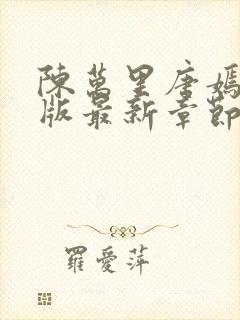 陳萬里唐嫣
版最新章節
羅愛萍